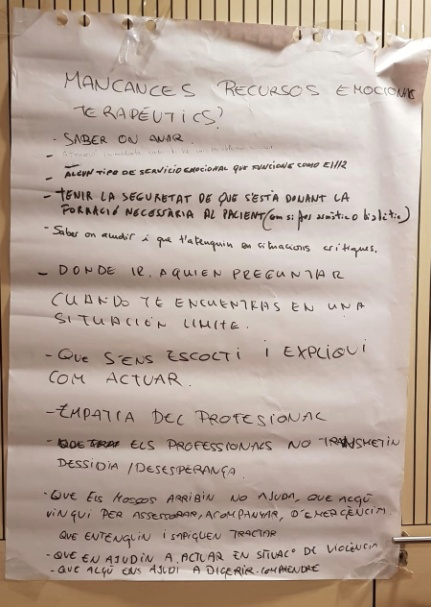 MANCANCES RECURSOS EMOCIONALS
TERAPÉUTICS?
- SABER ON ANAR.
-
- ALGUN TIPO DE SERVICIO EMOCIONAL QUE FUNCIONE COMO El 112
- TENIR LA SEGURETAT DE QUE S'ESTÀ DONANT LA
FORMACIÓ NECESSÀRIA AL PACIENT (com si fos asmàtic o diabètic)
- Saber on acudir i que t'atenguin en situacions crítiques.
- DONDE IR, A QUIEN PREGUNTAR
CUANDO TE ENCUENTRAS EN UNA
SITUACIÓN LÍMITE.
- QUE S'ENS ESCOLTI I EXPLIQUI
COM ACTUAR.
- EMPATIA DEL PROFESIONAL
- ELS PROFESSIONALS NO TRANSMETIN
DESSIDIA / DESESPERANÇA.
- QUE ELS MOSSOS ARRIBIN NO AJUDA, QUE ALGÚ
VINGUI PER ASSESSORAR, ACOMPANYAR, D'EMERGÈNCIA.
QUE ENTENGUIN I SAPIGUEN TRACTAR
- QUE EN AJUDIN A ACTUAR EN SITUACº DE VIOLÈNCIA
- QUE ALGÚ ENS AJUDI A DIGERIR-COMPRENDRE